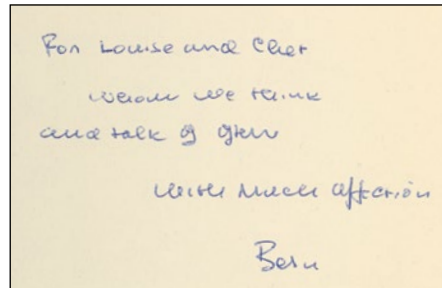 For Louise and Chet
whom we think
and talk of
with much affection
Bern